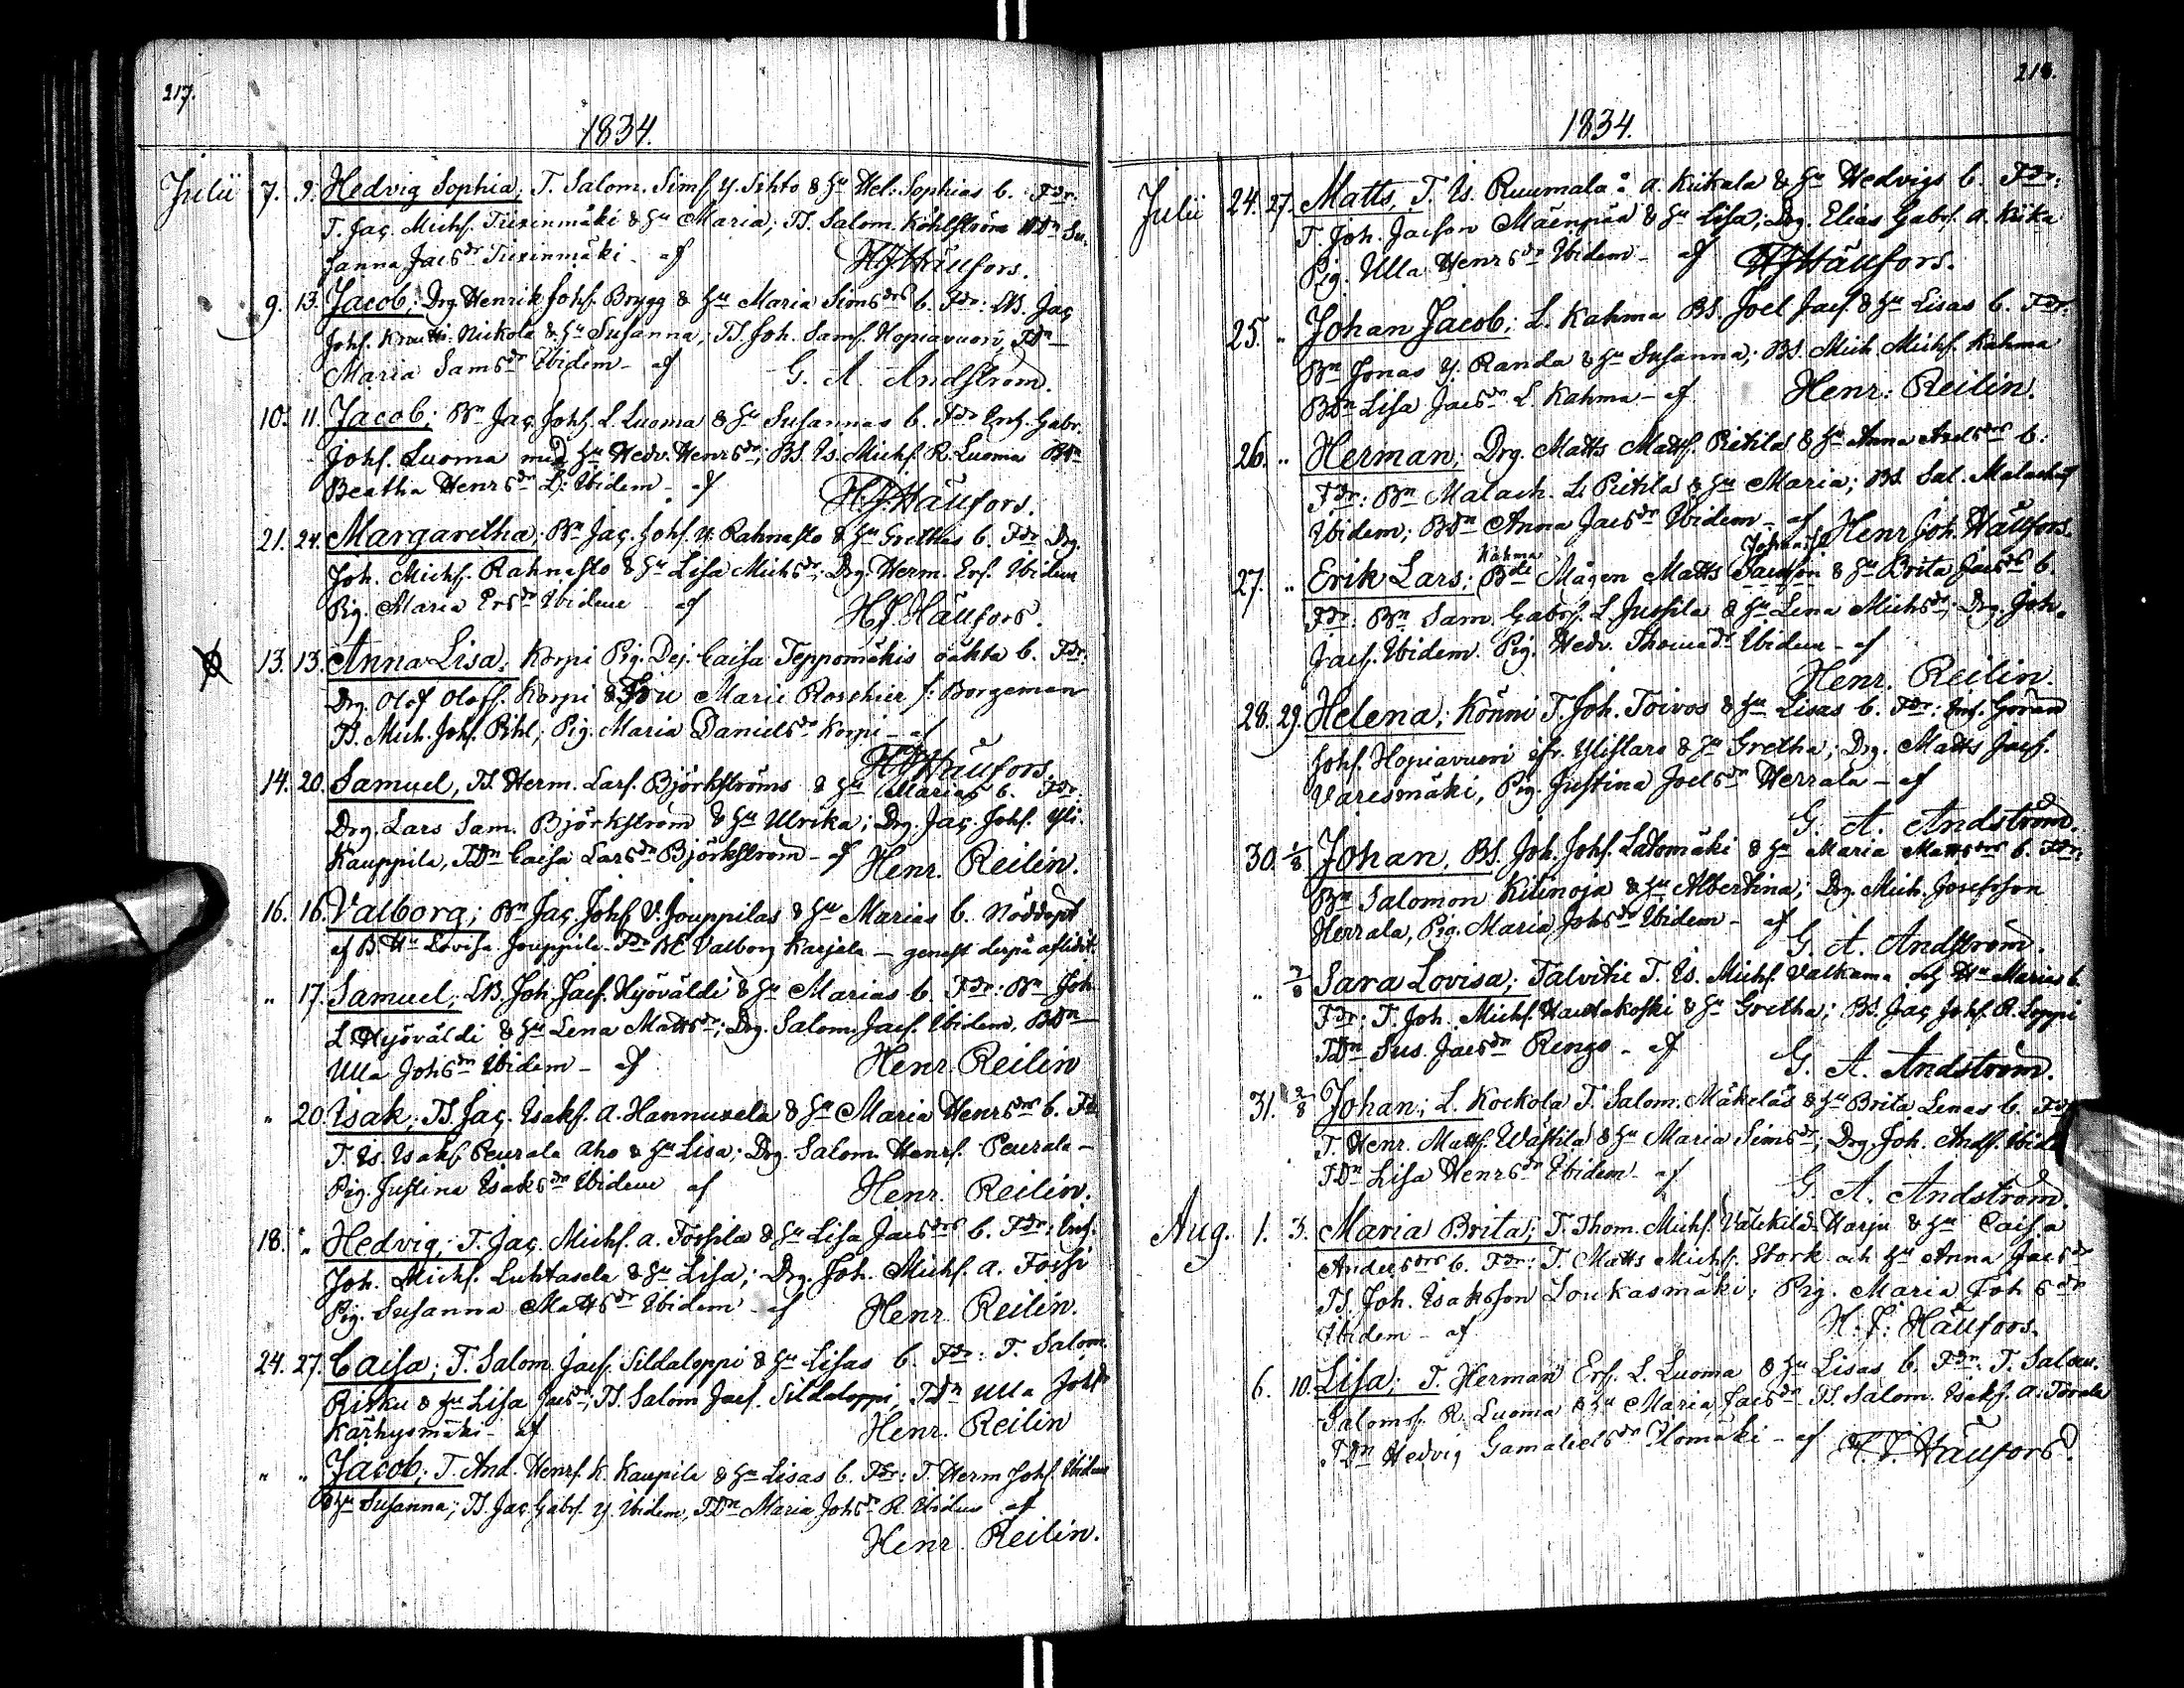 217.
1834.
Julii 7. 9. Hedvig Sophia; T. Salom. Simsſ. Y. Sihto & Hu Hel: Sophias b. Fdr:
T. Jaç. Michſ. Tuxinmäki & Hu Maria; TS. Salom. Kohlſtröm TDn Su-
ſanna Jacsdr Tuxinmäki - af H J Häufors.
9. 13. Jacob; Drg Henrik Johſ. Brygg & Hu Maria Simsdrs b. Fdr: LB. Jaç
Johſ. Knutti Nickola & Hu Suſanna; TS. Joh. Samſ. Hopiavuori, TDn
Maria Samsdr Ibidem - af G. A. Andſtröm.
10. 11. Jacob; Bn Jaç. Johſ. L. Luoma & Hu Suſannas b. Fdr Enh. Gabr.
Johſ. Luoma med Hu Hedv. Henrsdr; BS. Is. Michſ. R. Luoma BDn
Beatha Henrsdr L: Ibidem - af H. J. Häufors.
21. 24. Margaretha; Bn Jaç. Johſ. Y. Rahnaſto & Hu Grethas b. Fdr Drg.
Joh. Michſ. Rahnaſto & Hu Liſa Michsdr; Drg. Herm. Erſ. Ibidem
Pig. Maria Ersdr Ibidem af H. J. Häufors.
13. 13. Anna Lisa; Korpi Pig. Dej. Caiſa Teppomäkis oäkta b. Fdr:
Drg. Olof Oloſſ. Korpi & Fru Marie Roschier f: Borgeman
TS. Mich. Johſ. Pihl; Pig. Maria Danielsdr Korpi - af
H J Häufors.
14. 20. Samuel, TS Herm. Larſ. Björkſtröms & Hu Marias b. Fdr:
Drg. Lars Sam. Björkſtröm & Hu Ulrika; Drg. Jaç. Johſ. Yli-
Kauppila, TDn Caiſa Larsdr Björkſtröm - af Henr. Reilin.
16. 16. Valborg; Bn Jaç. Johſ. Y. Jouppilas & Hu Marias b. Nöddöpt
af B. Hu Loviſa Jouppila. Fdr BE Valborg Karjala - geneſt derpå aflidit.
" 17. Samuel; LB. Joh. Jacſ. Hyöväldi & Hu Marias b. Fdr: Bn Joh
L. Hyöväldi & Hu Lena Mattsdr; Drg. Salom. Jacſ. Ibidem, BDn
Ulla Johsdr Ibidem - af Henr. Reilin
" 20. Isak; TS. Jaç. Isakſ. A. Hannuxela & Hu Maria Henrsdrs b. Fdr
T. Is. Isakſ. Peurala Aho & Hu Lisa; Drg. Salom. Henrſ. Peurala -
Pig. Juſtina Isaksdr Ibidem af Henr. Reilin.
18. " Hedvig; T. Jaç. Michſ. a. Foſſila & Hu Liſa Jacsdrs b. Fdr: Enh.
Joh. Michſ. Luhtasela & Hu Liſa; Drg. Joh. Michſ. a. Foſſi
Pig. Susanna Mattsdr Ibidem - af Henr Reilin.
24. 27. Caiſa; T. Salom. Jacſ. Sildaloppi & Hu Liſas b. Fdr: T. Salom.
Risku & Hu Liſa Jacsdr; TS. Salom Jacſ. Sildaloppi, TDn Ulla Johſdr
Karhysmäki - af Henr. Reilin
" " Jacob; T. And. Henrſ. K. Kaupila & Hu Lisas b. Fdr: T. Herm Johſ Ibidem
& Hu Suſanna; TS. Jaç. Gabrſ. Y. Ibidem, TDn Maria Johsdr R. Ibidem af
Henr. Reilin.
218.
1834.
Julii 24. 27. Matts, T. Is. Ruumala: a. Kiikala & Hu Hedvigs b. Fdr:
T. Joh. Jacſon Mäenpää & Hu Liſa; Drg. Elias Gabrſ. a. Kiika
Pig. Ulla Henrsdr Ibidem - af H J Häufors.
25. " Johan Jacob; L. Kahma BS. Joel Jacſ. & Hu Lisas b. Fdr:
Bn Jonas Y. Randa & Hu Suſanna; BS. Mich. Michſ. Kahma
BDn Liſa Jacsdr L. Kahma - af Henr: Reilin.
26. " Herman; Drg. Matts Mattſ. Pietilä & Hu Anna Axelsdrs b:
Fdr: Bn Malach. L. Pietilä & Hu Maria; BS. Sal. Malachiſ
Ibidem; BDn Anna Jacsdr Ibidem - af Henr Joh. Häufors.
Kahma Johanſſ
27. " Erik Lars; Bde Mågen Matts Jacobſon & Hu Brita Jacsdrs b.
Fdr: Bn Sam. Gabrſ. L. Juſſila & Hu Lena Michsdr; Drg. Joh.
Jacſ. Ibidem. Pig. Hedv. Thomædr Ibidem - af
Henr. Reilin.
28. 29. Helena; Könni T. Joh. Toivos & Hu Lisas b. Fdr: Enh. Göran
Johſ. Hopiavuori ifr. Yliſtaro & Hu Gretha; Drg. Matts Jacſ.
Varismäki, Pig. Juſtina Joelsdr Herrala - af
G. A. Andström.
30. 1/8 Johan, BS. Joh. Johſ. Latomäki & Hu Maria Mattsdrs b. Fdr:
Bn Salomon Kitinoja & Hu Albertina; Drg. Mich. Josefsſon
Herrala, Pig. Maria Johsdr Ibidem - af
G. A. Andſtröm.
" 2/8 Sara Lovisa; Talvitie T. Is. Michſ. Valkama och Hu Marias b.
Fdr: T. Joh. Michſ. Hautakoſki & Hu Gretha; BS. Jaç Johſ. R. Loppi
TDn Sus. Jacsdr Rengo - af G. A. Andström.
31. 2/8 Johan; L. Kockola T. Salom. Mäkeläs & Hu Brita Lenas b. Fdr
T. Henr. Mattſ. Wäſtilä & Hu Maria Simsdr; Drg. Joh. Andſ. Ibide
TDn Liſa Henrsdr Ibidem - af G. A. Andström.
Aug. 1. 3. Maria Brita; T. Thom. Michſ. Välikild-Harju & Hu Caiſa
Andersdrs b. Fdr: T. Matts Michſ. Stork och Hu Anna Jacsdr
TS. Joh. Isaksſon Loukasmäki; Pig. Maria Johsdr
Ibidem - af H. J: Häufors.
6. 10. Liſa; T. Herman Erſ. L. Luoma & Hu Lisas b. Fdr: T. Salom.
Salomsſ. R. Luoma & Hu Maria Jacsdr TS. Salom. Isakſ. a. Törala
TDn Hedvig Gamalielsdr Ylömäki - af H. J. Häufors.